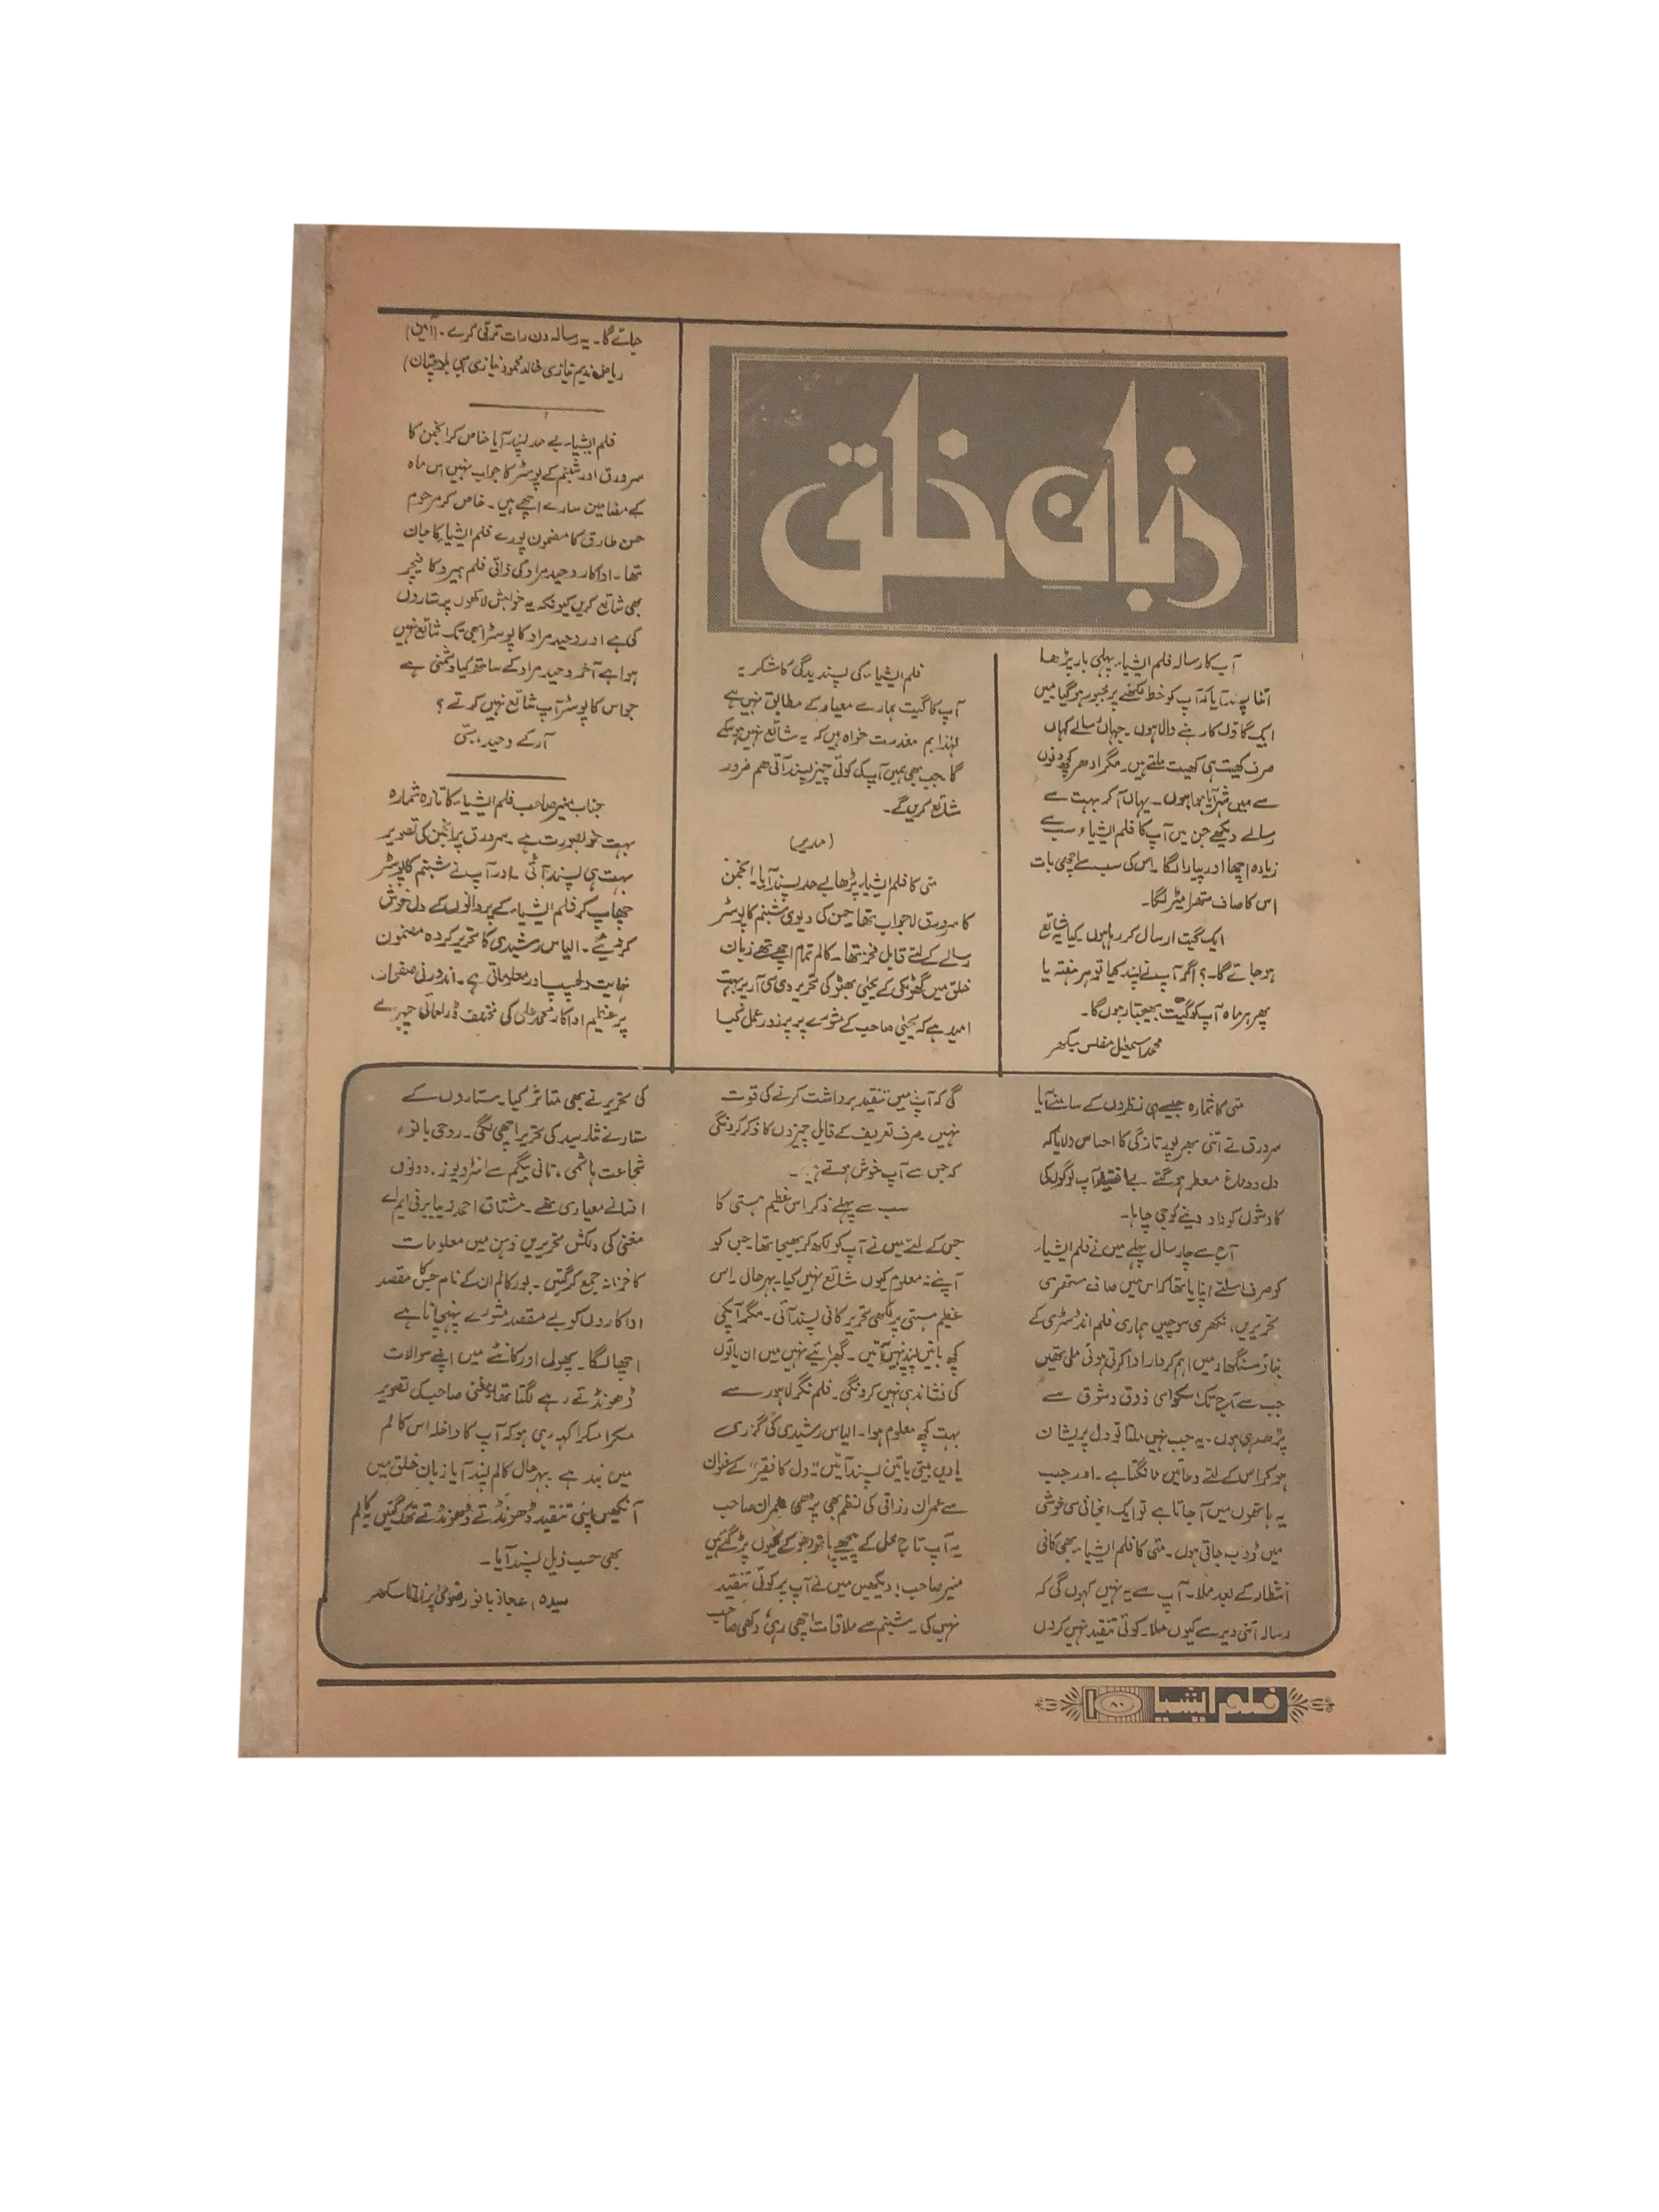 زبانِ خلق
آپ کا رسالہ فلم ایشیاء پہلی بار پڑھا
اتنا پسند آیا کہ آپ کو خط لکھنے پر مجبور ہو گیا میں
ایک گاؤں کا رہنے والا ہوں۔ جہاں رسالے کہاں
صرف کھیت ہی کھیت ملتے ہیں۔ مگر ادھر کچھ دنوں
سے میں شہر آیا ہوا ہوں۔ یہاں آ کر بہت سے
رسالے دیکھے جن میں آپ کا فلم ایشیاء سب سے
زیادہ اچھا اور پیارا لگا۔ اس کی سب سے اچھی بات
اس کا صاف ستھرا میٹر لگا۔
ایک گیت ارسال کر رہا ہوں کیا یہ شائع
ہو جائے گا۔؟ اگر آپ نے پسند کیا تو ہر ہفتہ یا
پھر ہر ماہ آپ کو گیت بھیجتا رہوں گا۔
محمد اسمعیل مفلس
فلم ایشیاء کی پسندیدگی کا شکریہ
آپ کا گیت ہمارے معیار کے مطابق نہیں ہے
لہٰذا ہم معذرت خواہ ہیں کہ یہ شائع نہیں ہو سکے
گا جب بھی ہمیں آپ کی کوئی چیز پسند آئی ہم ضرور
شائع کریں گے۔
(مدیر)
مئی کا فلم ایشیاء پڑھا بے حد پسند آیا۔ انجمن
کا سرورق لاجواب تھا۔ حسن کی دیوی شبنم کا پوسٹر
رسالے کے لئے قابل فخر تھا۔ کالم تمام اچھے تھے زبان
خلق میں گھوٹکی کے یحیٰی بھٹو کی تحریر دی سی آر پر بہت
امید ہے کہ یحیٰی صاحب کے مشورے پر پرزور عمل کیا
جائے گا۔ یہ رسالہ دن رات ترقی کرے۔ (آمین)
ریاض ندیم نیازی خالد محمود نیازی سبی بلوچستان)
فلم ایشیاء بے حد پسند آیا خاص کر انجمن کا
سرورق اور شبنم کے پوسٹر کا جواب نہیں اس ماہ
کے مضامین سارے اچھے ہیں۔ خاص کر مرحوم
حسن طارق کا مضمون پورے فلم ایشیاء کا جان
تھا۔ اداکار وحید مراد کی ذاتی فلم ہیرو کا فیچر
بھی شائع کریں کیونکہ یہ خواہش لاکھوں پرستاروں
کی ہے اور وحید مراد کا پوسٹر ابھی تک شائع نہیں
ہوا ہے آخر وحید مراد کے ساتھ کیا دشمنی ہے
جو اس کا پوسٹر آپ شائع نہیں کرتے؟
آر کے وحید، سبّی
جناب منیر صاحب فلم ایشیاء کا تازہ شمارہ
بہت خوبصورت ہے۔ سرورق پر انجمن کی تصویر
بہت ہی پسند آئی۔ اور آپ نے شبنم کا پوسٹر
چھاپ کر فلم ایشیاء کے پروانوں کے دل خوش
کر دیئے۔ الیاس رشیدی کا تحریر کردہ مضمون
نہایت دلچسپ اور معلوماتی ہے۔ اندرونی صفحات
پر عظیم اداکار محمد علی کی مختلف ڈرامائی چہرے
مئی کا شمارہ جیسے ہی نظروں کے سامنے آیا
سرورق نے اتنی بھرپور تازگی کا احساس دلایا کہ
دل و دماغ معطر ہو گئے بے اختیار آپ لوگوں کی
کاوشوں کو داد دینے کو جی چاہا۔
آج سے چار سال پہلے میں نے فلم ایشیاء
کو صرف اسلئے اپنایا تھا کہ اس میں صاف ستھری
تحریریں، نکھری سوچیں ہماری فلم انڈسٹری کے
بناؤ سنگھار میں اہم کردار ادا کرتی ہوئی ملی تھیں
جب سے آج تک اسکو اسی ذوق و شوق سے
پڑھ رہی ہوں۔ یہ جب نہیں ملتا تو دل پریشان
ہو کر اس کے لئے دعائیں مانگتا ہے۔ اور جب
یہ ہاتھوں میں آ جاتا ہے تو ایک انجانی سی خوشی
میں ڈوب جاتی ہوں۔ مئی کا فلم ایشیاء بھی کافی
انتظار کے بعد ملا۔ آپ سے یہ نہیں کہوں گی کہ
رسالہ اتنی دیر سے کیوں ملا۔ کوئی تنقید نہیں کروں
گی کہ آپ میں تنقید برداشت کرنے کی قوت
نہیں صرف تعریف کے قابل چیزوں کا ذکر کرونگی
کہ جس سے آپ خوش ہوتے ہیں۔
سب سے پہلے ذکر اس عظیم ہستی کا
جس کے لئے میں نے آپ کو لکھ کر بھیجا تھا جس کو
آپ نے نہ معلوم کیوں شائع نہیں کیا۔ بہرحال اس
عظیم ہستی پر لکھی تحریر کافی پسند آئی۔ مگر آپکی
کچھ باتیں پسند نہیں آئیں۔ گھبرائیے نہیں میں ان باتوں
کی نشاندہی نہیں کرونگی۔ فلم نگر لاہور سے
بہت کچھ معلوم ہوا۔ الیاس رشیدی کی گزری
یادیں بیتی باتیں پسند آئیں "دل کا فقیر" کے عنوان
سے عمران رزاقی کی نظم بھی پڑھی عمران صاحب
یہ آپ تاج محل کے پیچھے ہاتھ دھو کے کیوں پڑ گئے ہیں
منیر صاحب! دیکھیں میں نے آپ پر کوئی تنقید
نہیں کی۔ شبنم سے ملاقات اچھی رہی، دکھی صاحب
کی تحریر نے بھی متاثر کیا۔ ستاروں کے
ستارے نثار سید کی تحریر اچھی لگی۔ روحی بانو،
شجاعت ہاشمی، تانی بیگم سے انٹرویوز۔ دونوں
افسانے معیاری تھے۔ مشتاق احمد زیبا برنی ایم اے
مغنی کی دلکش تحریریں ذہن میں معلومات
کا خزانہ جمع کر گئیں۔ بور کالم ان کے نام جس کا مقصد
اداکاروں کو بے مقصد مشورے پہنچانا ہے
اچھا لگا۔ پھول اور کانٹے میں اپنے سوالات
ڈھونڈتے رہے لگتا تھا مغنی صاحب کی تصویر
مسکرا مسکرا کہہ رہی ہو کہ آپ کا داخلہ اس کالم
میں بند ہے بہرحال کالم پسند آیا زبانِ خلق میں
آنکھیں اپنی تنقید ڈھونڈتے ڈھونڈتے تھک گئیں یہ کالم
بھی حسب ذیل پسند آیا۔
سیدہ اعجاز بانو رضوی سکھر
فلم ایشیا ۸۰